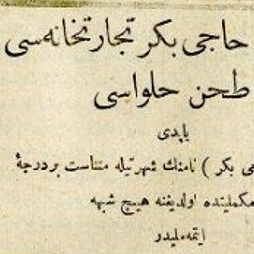 حاجی بكر تجارتخانه‌سی
طحن حلواسی
یاپدی
بكر ) نامنك شهرتیله متناسب بر درجهٔ
مكملیتده اولدیغنه هیچ شبهه
ایتمه‌ملیدر